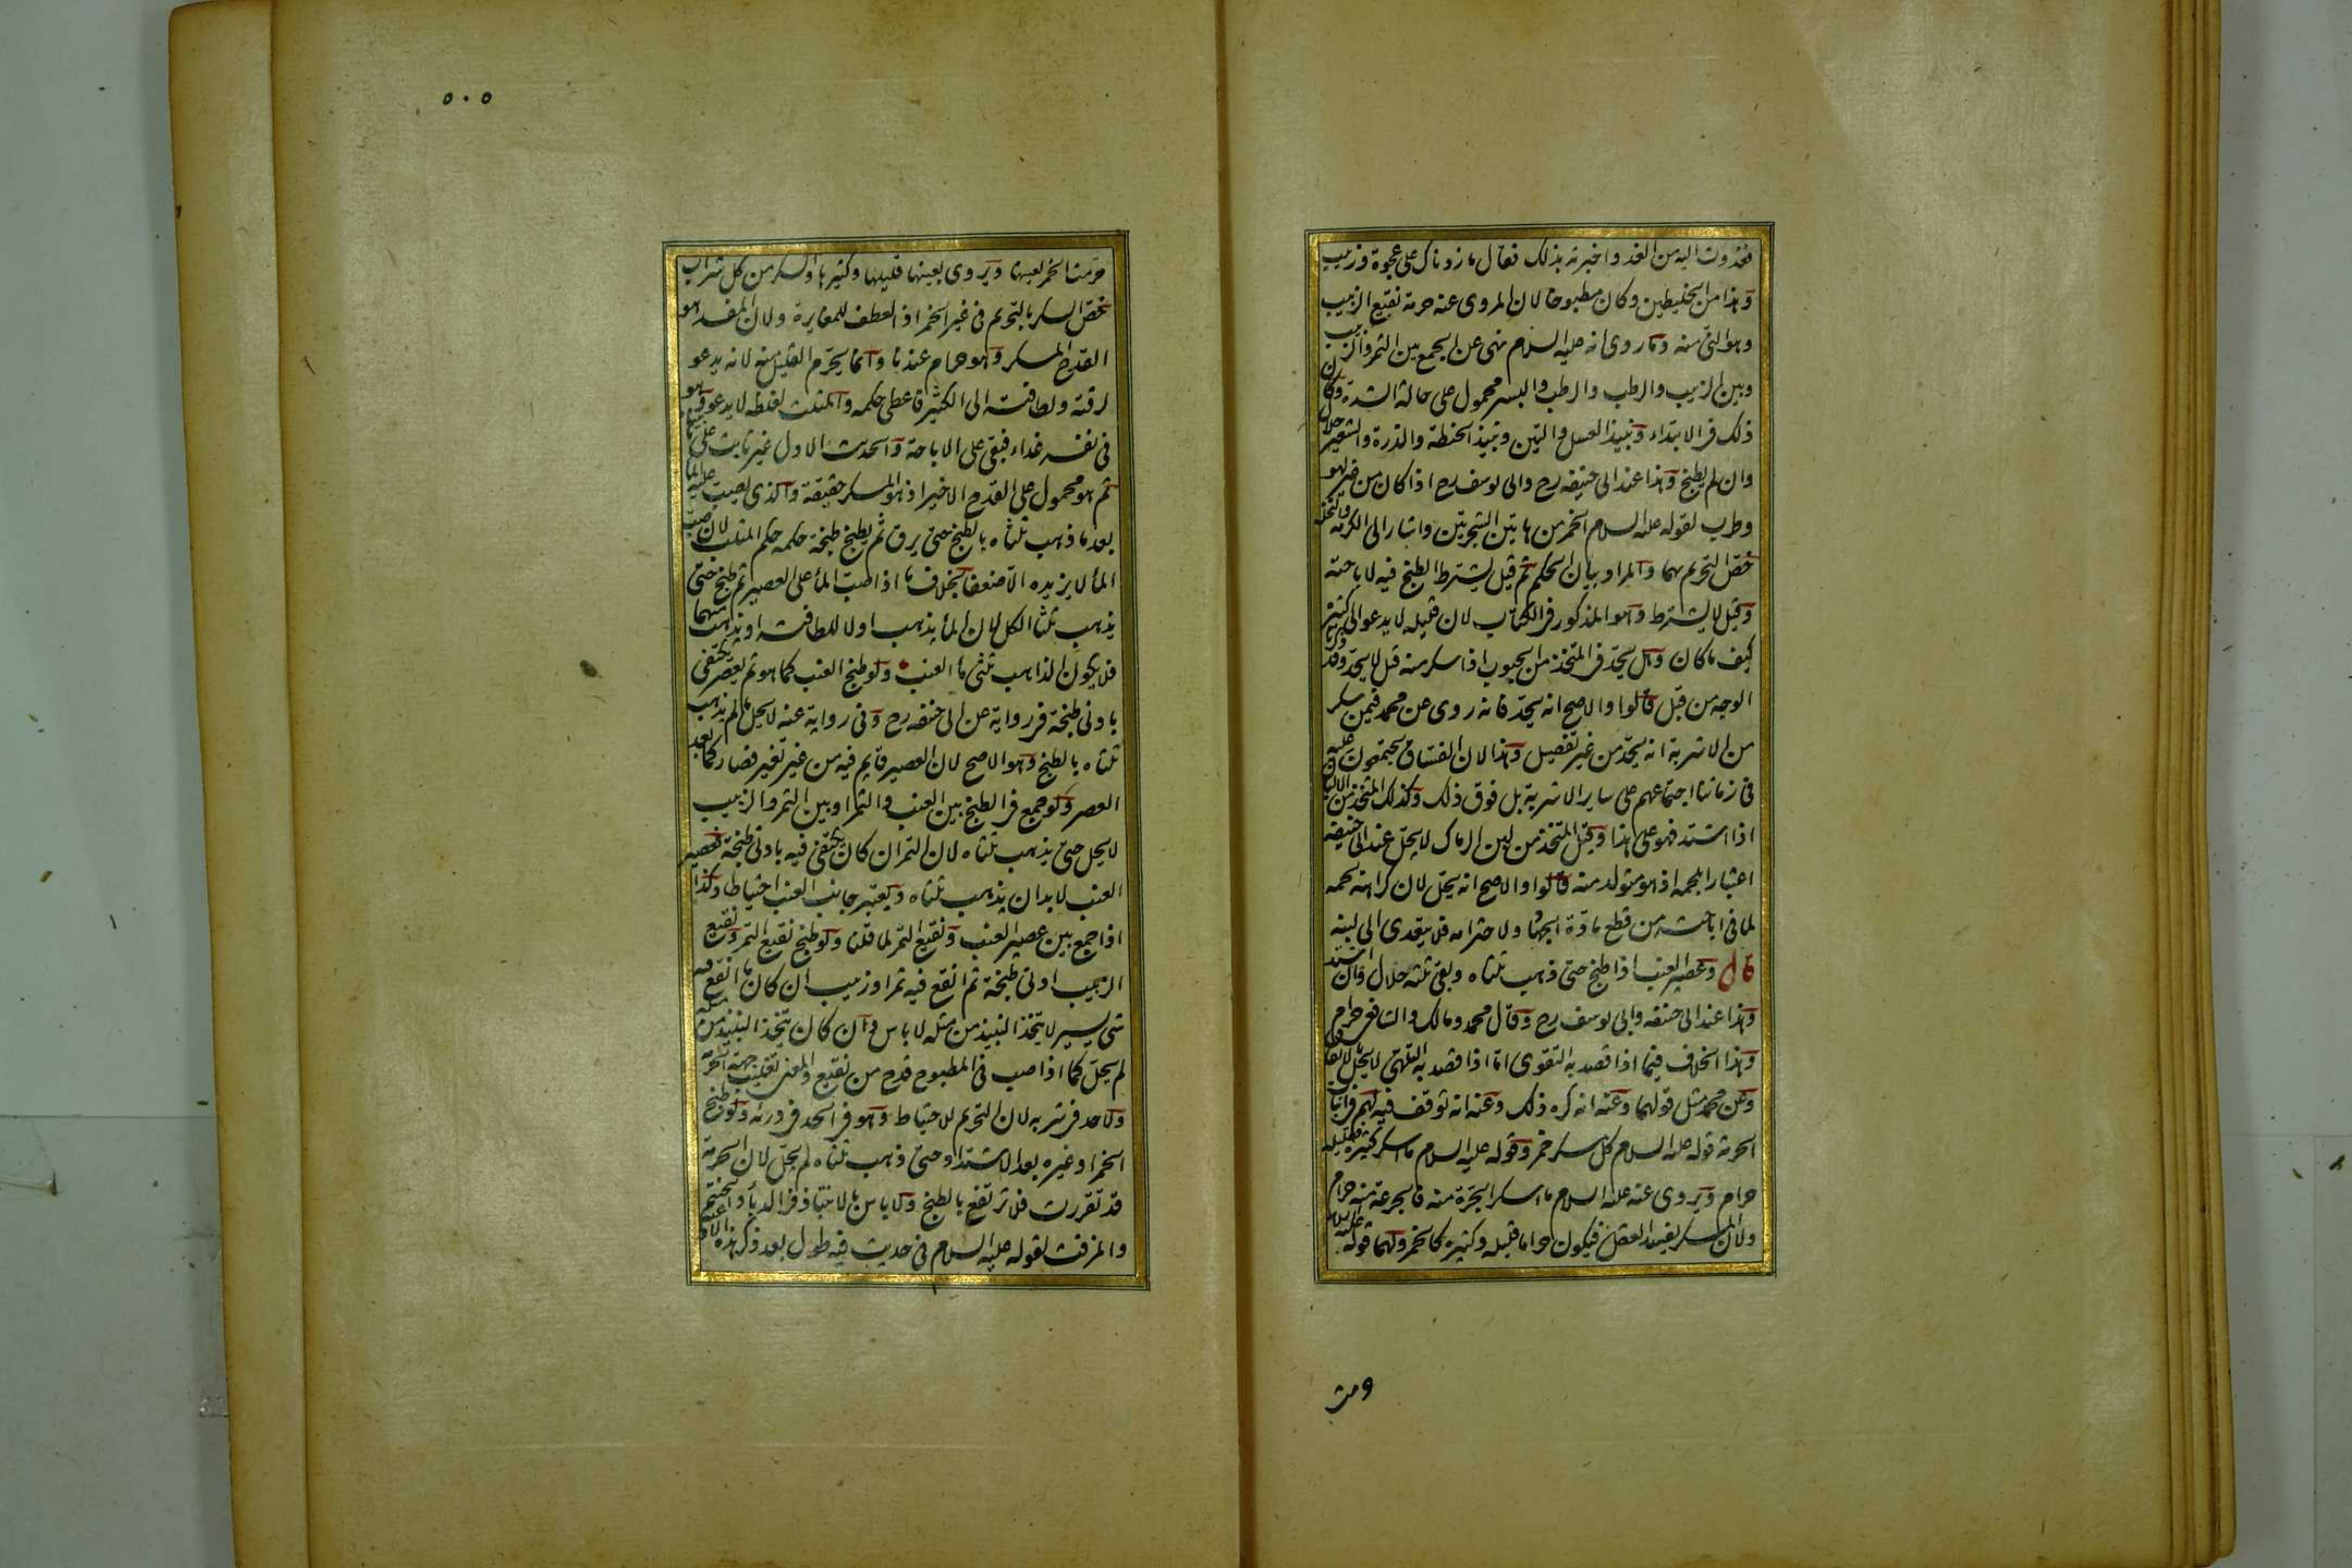 فغدوت اليه من الغد واخبرته بذلك فقال ما زدناك على عجوة وزبيب
وهذا من الخليطين وكان مطبوخا لان المروى عنه حرمة نقيع الزبيب
وهو النئ منه وما روى انه عليه السلام نهى عن الجمع بين التمر والزبيب
وبين الزبيب والرطب والرطب والبسر محمول على حالة الشدة وكان
ذلك فى الابتداء ونبيذ العسل والتين ونبيذ الحنطة والذرة والشعير حلال
وان لم يطبخ وهذا عند ابى حنيفه رح وابى يوسف رح اذا كان من غير لهو
وطرب لقوله عليه السلام الخمر من هاتين الشجرتين واشار الى الكرمة والنخلة
خص التحريم بهما والمراد بيان الحكم ثم قيل يشترط الطبخ فيه لاباحته
وقيل لا يشترط وهو المذكور فى الكتاب لان قليله لا يدعو الى كثيره
كيف ما كان وهل يحد فى المتخذ من الحبوب اذا سكر منه قيل لا يحد وقد ذكرنا
الوجه من قبل قالوا والاصح انه يحد فانه روى عن محمد فيمن سكر
من الاشربة انه يحد من غير تفصيل وهذا لان الفساق يجتمعون عليه
فى زماننا اجتماعهم على ساير الاشربة بل فوق ذلك وكذلك المتخذ من الالبان
اذا اشتد فهو على هذا وقيل المتخذ من لبن الرماك لا يحل عند ابى حنيفة
اعتبارا بلحمه اذ هو متولد منه قالوا والاصح انه يحل لان كراهة لحمه
لما فى اباحته من قطع مادة الجهاد ولاحترامه فلا يتعدى الى لبنه
قال وعصير العنب اذا طبخ حتى ذهب ثلثاه وبقى ثلثه حلال وان اشتد
وهذا عند ابى حنيفه وابى يوسف رح وقال محمد ومالك والشافعى حرام
وهذا الخلاف فيما اذا قصد به التقوى اما اذا قصد به التلهى لا يحل بالاتفاق
وعن محمد مثل قولهما وعنه انه كره ذلك وعنه انه توقف فيه لهم فى اثبات
الحرمة قوله عليه السلام كل مسكر خمر وقوله عليه السلام ما اسكر كثيره فقليله
حرام ويروى عنه عليه السلام ما اسكر الجرة منه فالجرعة منه حرام
ولان المسكر يفسد العقل فيكون حراما قليله وكثيره كالخمر ولهما قوله عليه السلام
٥٠٥
حرمت الخمر لعينها ويروى بعينها قليلها وكثيرها والسكر من كل شراب
خص السكر بالتحريم فى غير الخمر اذ العطف للمغايرة ولان المفسد هو
القدح المسكر وهو حرام عندنا وانما يحرم القليل منه لانه يدعو
لرقته ولطافته الى الكثير فاعطى حكمه والمثلث لغلظه لا يدعو وهو
فى نفسه غذاء فبقى على الاباحة والحديث الاول غير ثابت على ما بينا
ثم هو محمول على القدح الاخير اذ هو المسكر حقيقة والذى يصب عليه الماء
بعد ما ذهب ثلثاه بالطبخ حتى يرق ثم يطبخ طبخة حكمه حكم المثلث لان صب
الماء لا يزيده الا ضعفا بخلاف ما اذا صب الماء على العصير ثم طبخ حتى
يذهب ثلثا الكل لان الماء يذهب اولا للطافته او يذهب منهما
فلا يكون الذاهب ثلثى ماء العنب ولو طبخ العنب كما هو ثم يعصر يكتفى
بادنى طبخة فى رواية عن ابى حنيفه رح وفى رواية عنه لا يحل ما لم يذهب
ثلثاه بالطبخ وهو الاصح لان العصير قايم فيه من غير تغير فصار كما بعد
العصر ولو جمع فى الطبخ بين العنب والتمر او بين التمر والزبيب
لا يحل حتى يذهب ثلثاه لان التمر ان كان يكتفى فيه بادنى طبخة فعصير
العنب لا بد ان يذهب ثلثاه ويعتبر جانب العنب احتياطا وكذا
اذا جمع بين عصير العنب ونقيع التمر لما قلنا ولو طبخ نقيع التمر ونقيع
الزبيب ادنى طبخة ثم انقع فيه تمر او زبيب ان كان ما انقع فيه
شئ يسير لا يتخذ النبيذ من مثله لا باس وان كان يتخذ النبيذ من مثله
لم يحل كما اذا صب فى المطبوخ قدح من نقيع والمعنى تغليب جهة الحرمة
ولا حد فى شربه لان التحريم للاحتياط وهو فى الحد فى درئه ولو طبخ
الخمر او غيره بعد الاشتداد حتى ذهب ثلثاه لم يحل لان الحرمة
قد تقررت فلا ترتفع بالطبخ ولا باس بالانتباذ فى الدباء والحنتم
والمزفت لقوله عليه السلام فى حديث فيه طول بعد ذكر هذه الاوعية